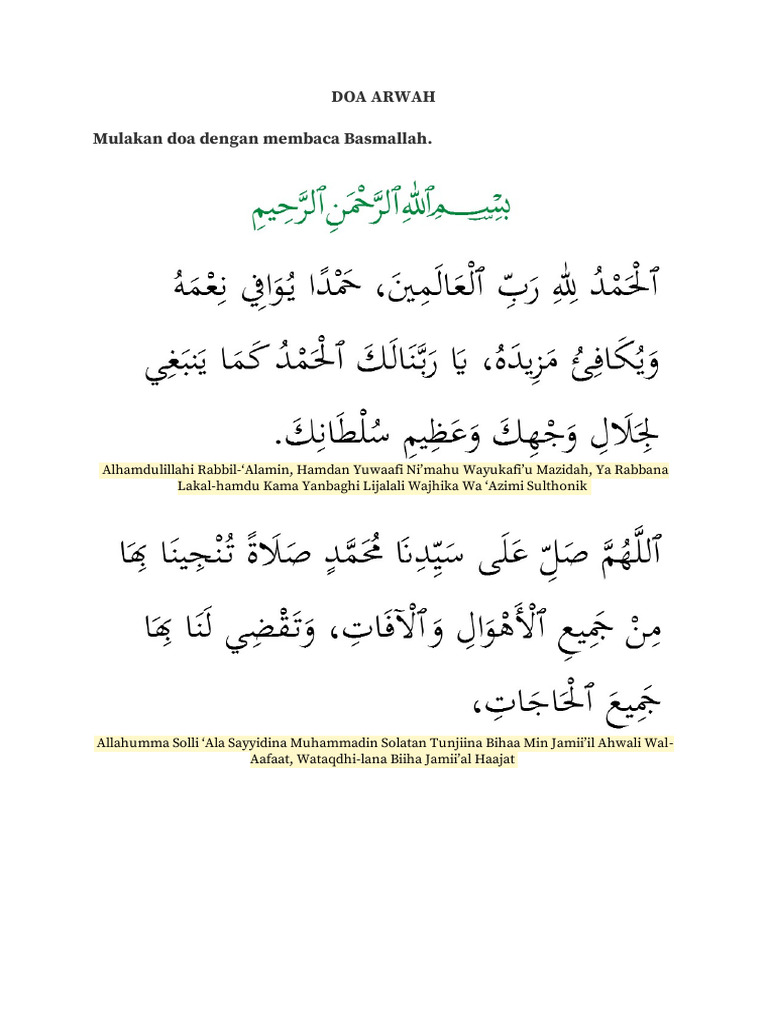 DOA ARWAH
Mulakan doa dengan membaca Basmallah.
بِسْمِ ٱللَّهِ ٱلرَّحْمَنِ ٱلرَّحِيمِ
ٱلْحَمْدُ لِلَّهِ رَبِّ ٱلْعَالَمِينَ، حَمْدًا يُوَافِي نِعْمَهُ
وَيُكَافِئُ مَزِيدَهُ، يَا رَبَّنَالَكَ ٱلْحَمْدُ كَمَا يَنبَغِي
لِجَلَالِ وَجْهِكَ وَعَظِيمِ سُلْطَانِكَ.
Alhamdulillahi Rabbil-‘Alamin, Hamdan Yuwaafi Ni’mahu Wayukafi’u Mazidah, Ya Rabbana
Lakal-hamdu Kama Yanbaghi Lijalali Wajhika Wa ‘Azimi Sulthonik
ٱللَّهُمَّ صَلِّ عَلَى سَيِّدِنَا مُحَمَّدٍ صَلَاةً تُنْجِينَا بِهَا
مِنْ جَمِيعِ ٱلْأَهْوَالِ وَٱلْآفَاتِ، وَتَقْضِي لَنَا بِهَا
جَمِيعَ ٱلْحَاجَاتِ،
Allahumma Solli ‘Ala Sayyidina Muhammadin Solatan Tunjiina Bihaa Min Jamii’il Ahwali Wal-
Aafaat, Wataqdhi-lana Biiha Jamii’al Haajat